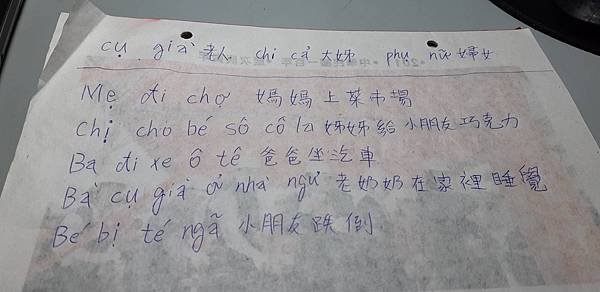 cụ già 老人 chị cả 大姊 phụ nữ 婦女
Mẹ đi chợ 媽媽上菜市場
Chị cho bé sô cô la 姊姊給小朋友巧克力
Ba đi xe ô tô 爸爸坐汽車
Bà cụ già ở nhà ngủ 老奶奶在家裡睡覺
Bé bị té ngã 小朋友跌倒